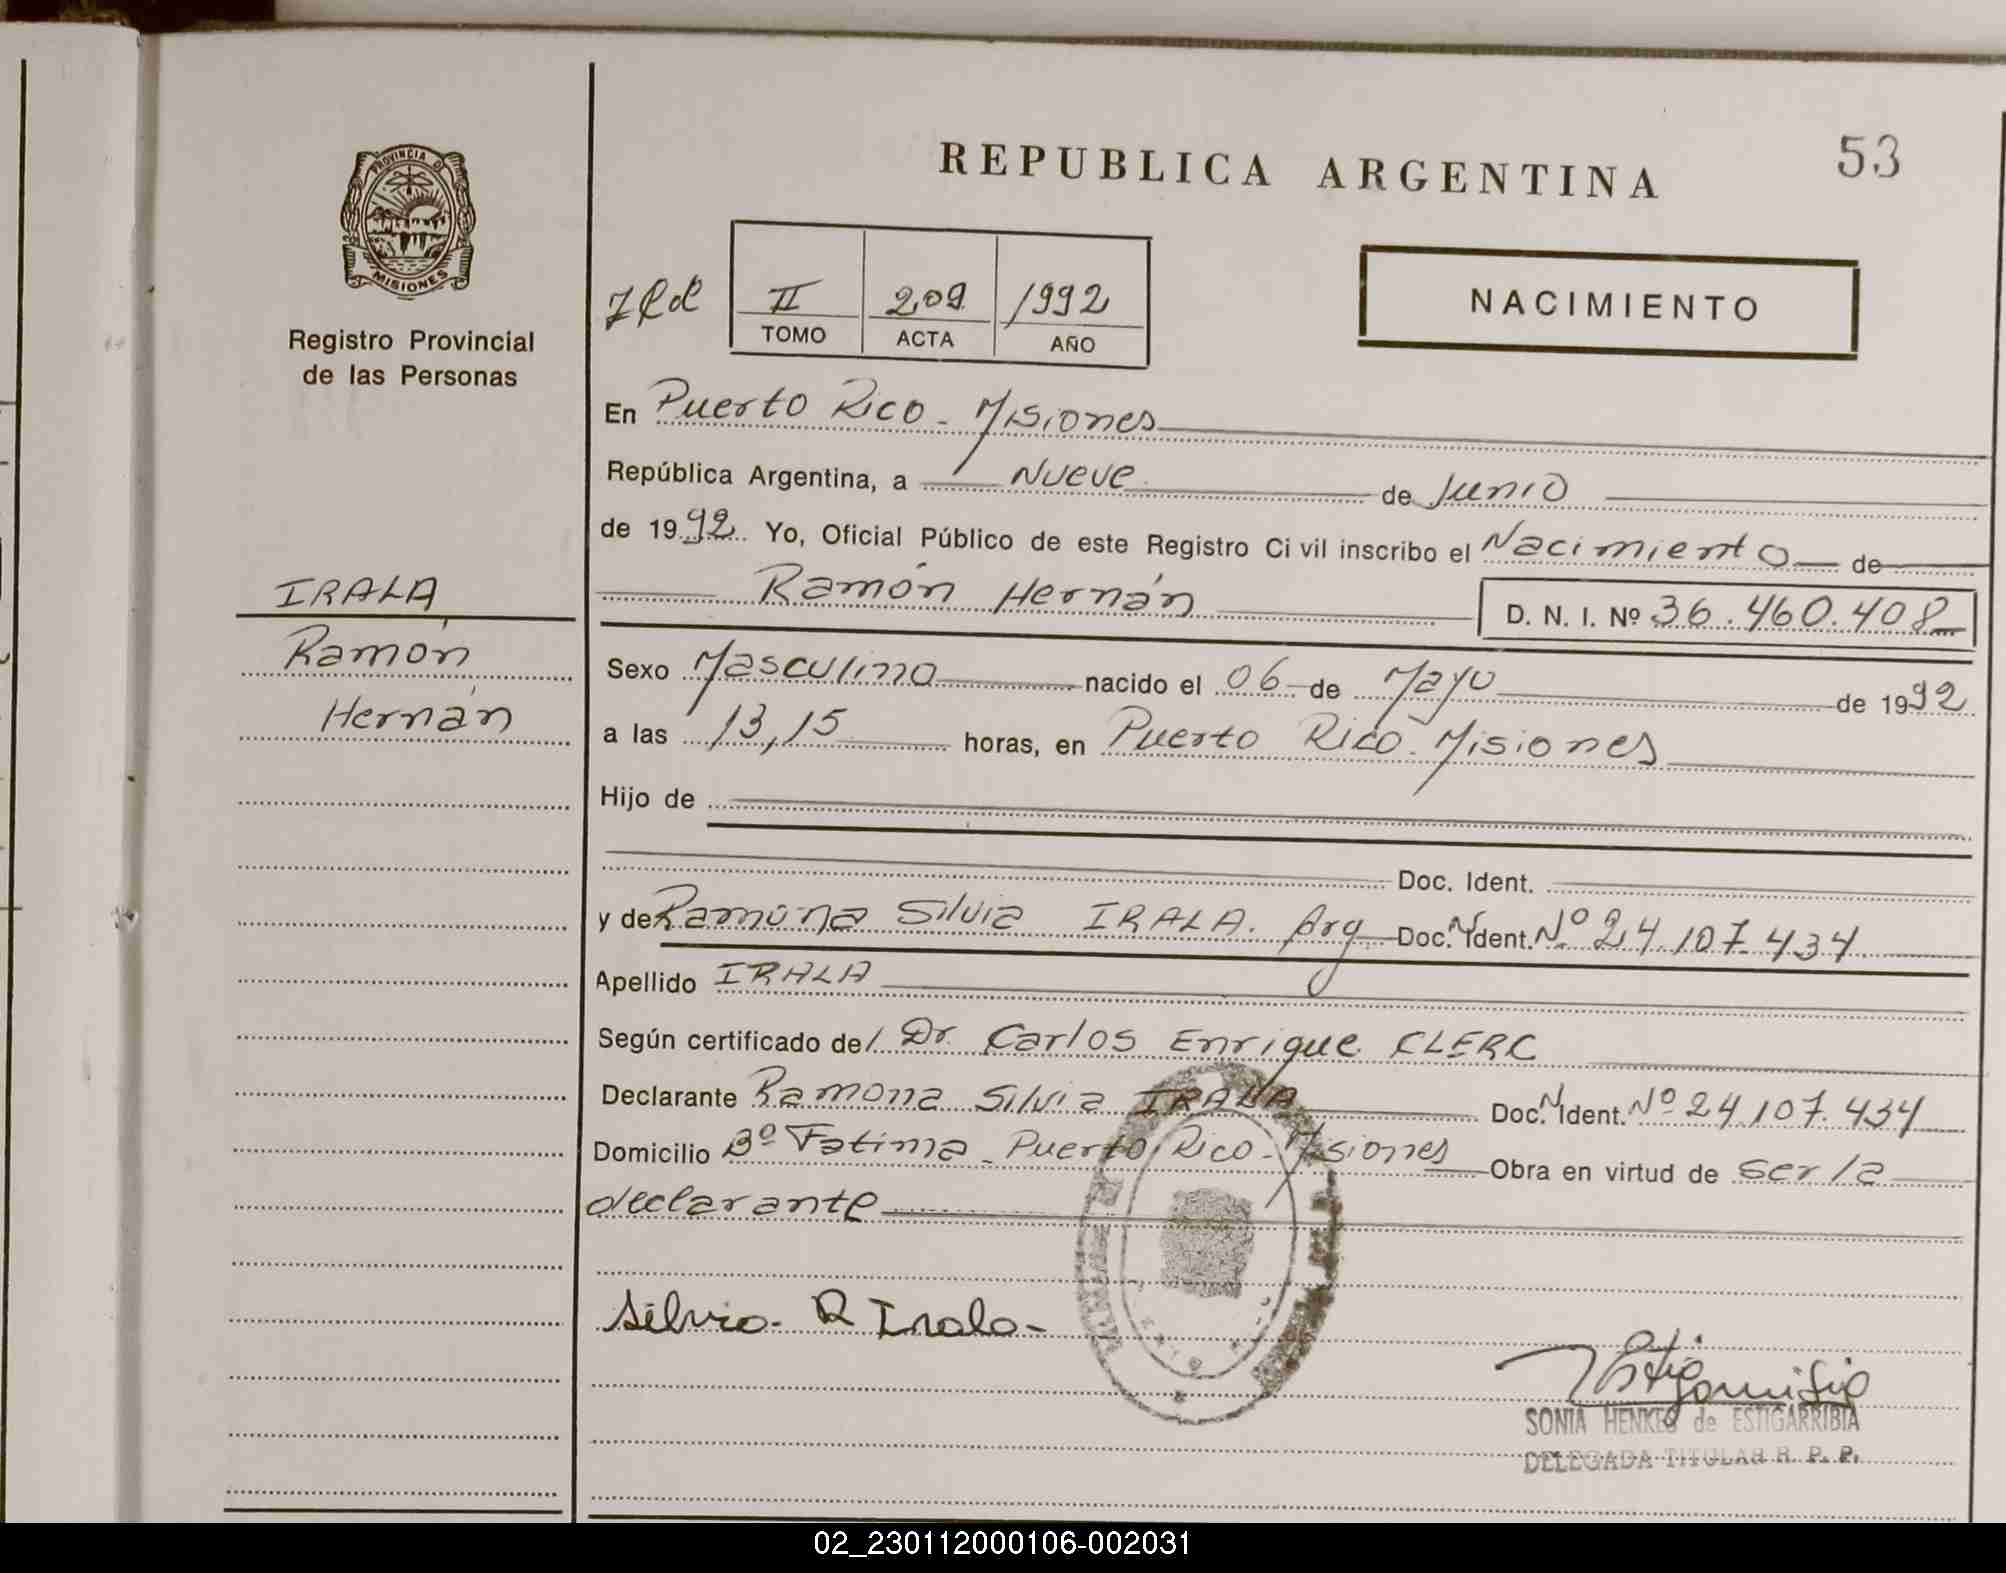 REPUBLICA ARGENTINA
53
PROVINCIA DE
MISIONES
Registro Provincial
de las Personas
II 209 1992
TOMO ACTA AÑO
NACIMIENTO
En Puerto Rico - Misiones
República Argentina, a Nueve de Junio
de 1992. Yo, Oficial Público de este Registro Civil inscribo el Nacimiento de
Ramón Hernán D. N. I. Nº 36.460.408
IRALA
Ramón
Hernán
Sexo Masculino nacido el 06 de Mayo de 1992
a las 13,15 horas, en Puerto Rico. Misiones
Hijo de
Doc. Ident.
y de Ramona Silvia IRALA. Arg. Doc. N. Ident. Nº 24.107.434
Apellido IRALA
Según certificado de/ Dr. Carlos Enrique CLERC
Declarante Ramona Silvia IRALA Doc. N. Ident. Nº 24.107.434
Domicilio Bº Fatima - Puerto Rico - Misiones Obra en virtud de ser la
declarante
Silvia R Irala
SONIA HENKES de ESTIGARRIBIA
DELEGADA TITULAR R. P. P.
02_230112000106-002031